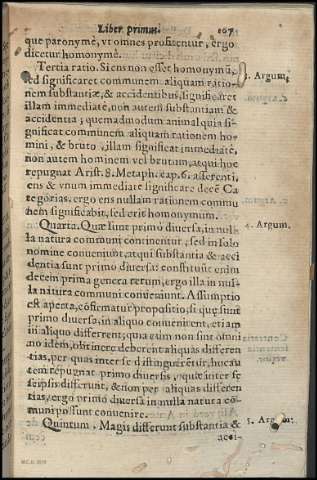 Liber primus. 107
que paronymè, vt omnes profitentur, ergo
dicetur homonymè.
Tertia ratio. Si ens non esset homonymũ,
sed significaret communem aliquam ratio-
nem substantiæ, & accidentibus, significaret
illam immediatè, non autem substantiam &
accidentia; quemadmodum animal quia si-
gnificat communem aliquam rationem ho-
mini, & bruto, illam significat immediatè,
non autem hominem vel brutum, atqui hoc
repugnat Arist. 8. Metaph. cap. 6. asserenti,
ens & vnum immediatè significare decẽ Ca-
tegorias. ergo ens nullam rationem commu
nem significabit, sed erit homonymum.
Quarta. Quæ sunt primò diuersa, in nul-
la natura communi continentur, sed in solo
nomine conueniunt, atqui substantia & acci
dentia sunt primò diuersa: constituũt enim
decem prima genera rerum, ergo illa in nul-
la natura communi conueniunt. Assumptio
est aperta, cõfirmatur propositio, si quæ sunt
primò diuersa, in aliquo conuenirent, etiam
in aliquo differrent; quia cum non sint omni
no idem, obtinere deberent aliquas differen
tias, per quas inter se distinguerẽtur, hoc au
tem repugnat primò diuersis, quæ inter se
seipsis differunt, & non per aliquas differen
tias, ergo primò diuersa in nulla natura cõ
muni possunt conuenire.
Quintum. Magis differunt substantia &
acci-
3. Argum.
4. Argum.
5. Argum.